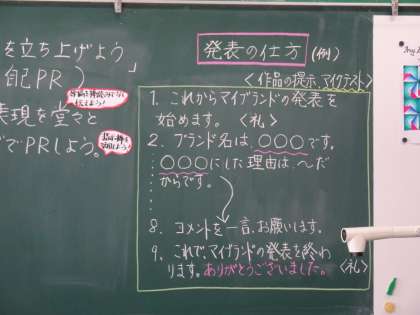 を立ち上げよう
自己PR)」
表現を堂々と
でPRしよう。
発表の仕方(例)
〈作品の提示、マイクテスト〉
1. これからマイブランドの発表を
始めます。〈礼〉
2. ブランド名は、〇〇〇です。
〇〇〇にした理由は、〜だ
からです。
8. コメントを一言、お願いします。
9. これで、マイブランドの発表を終わ
ります。ありがとうございました。〈礼〉